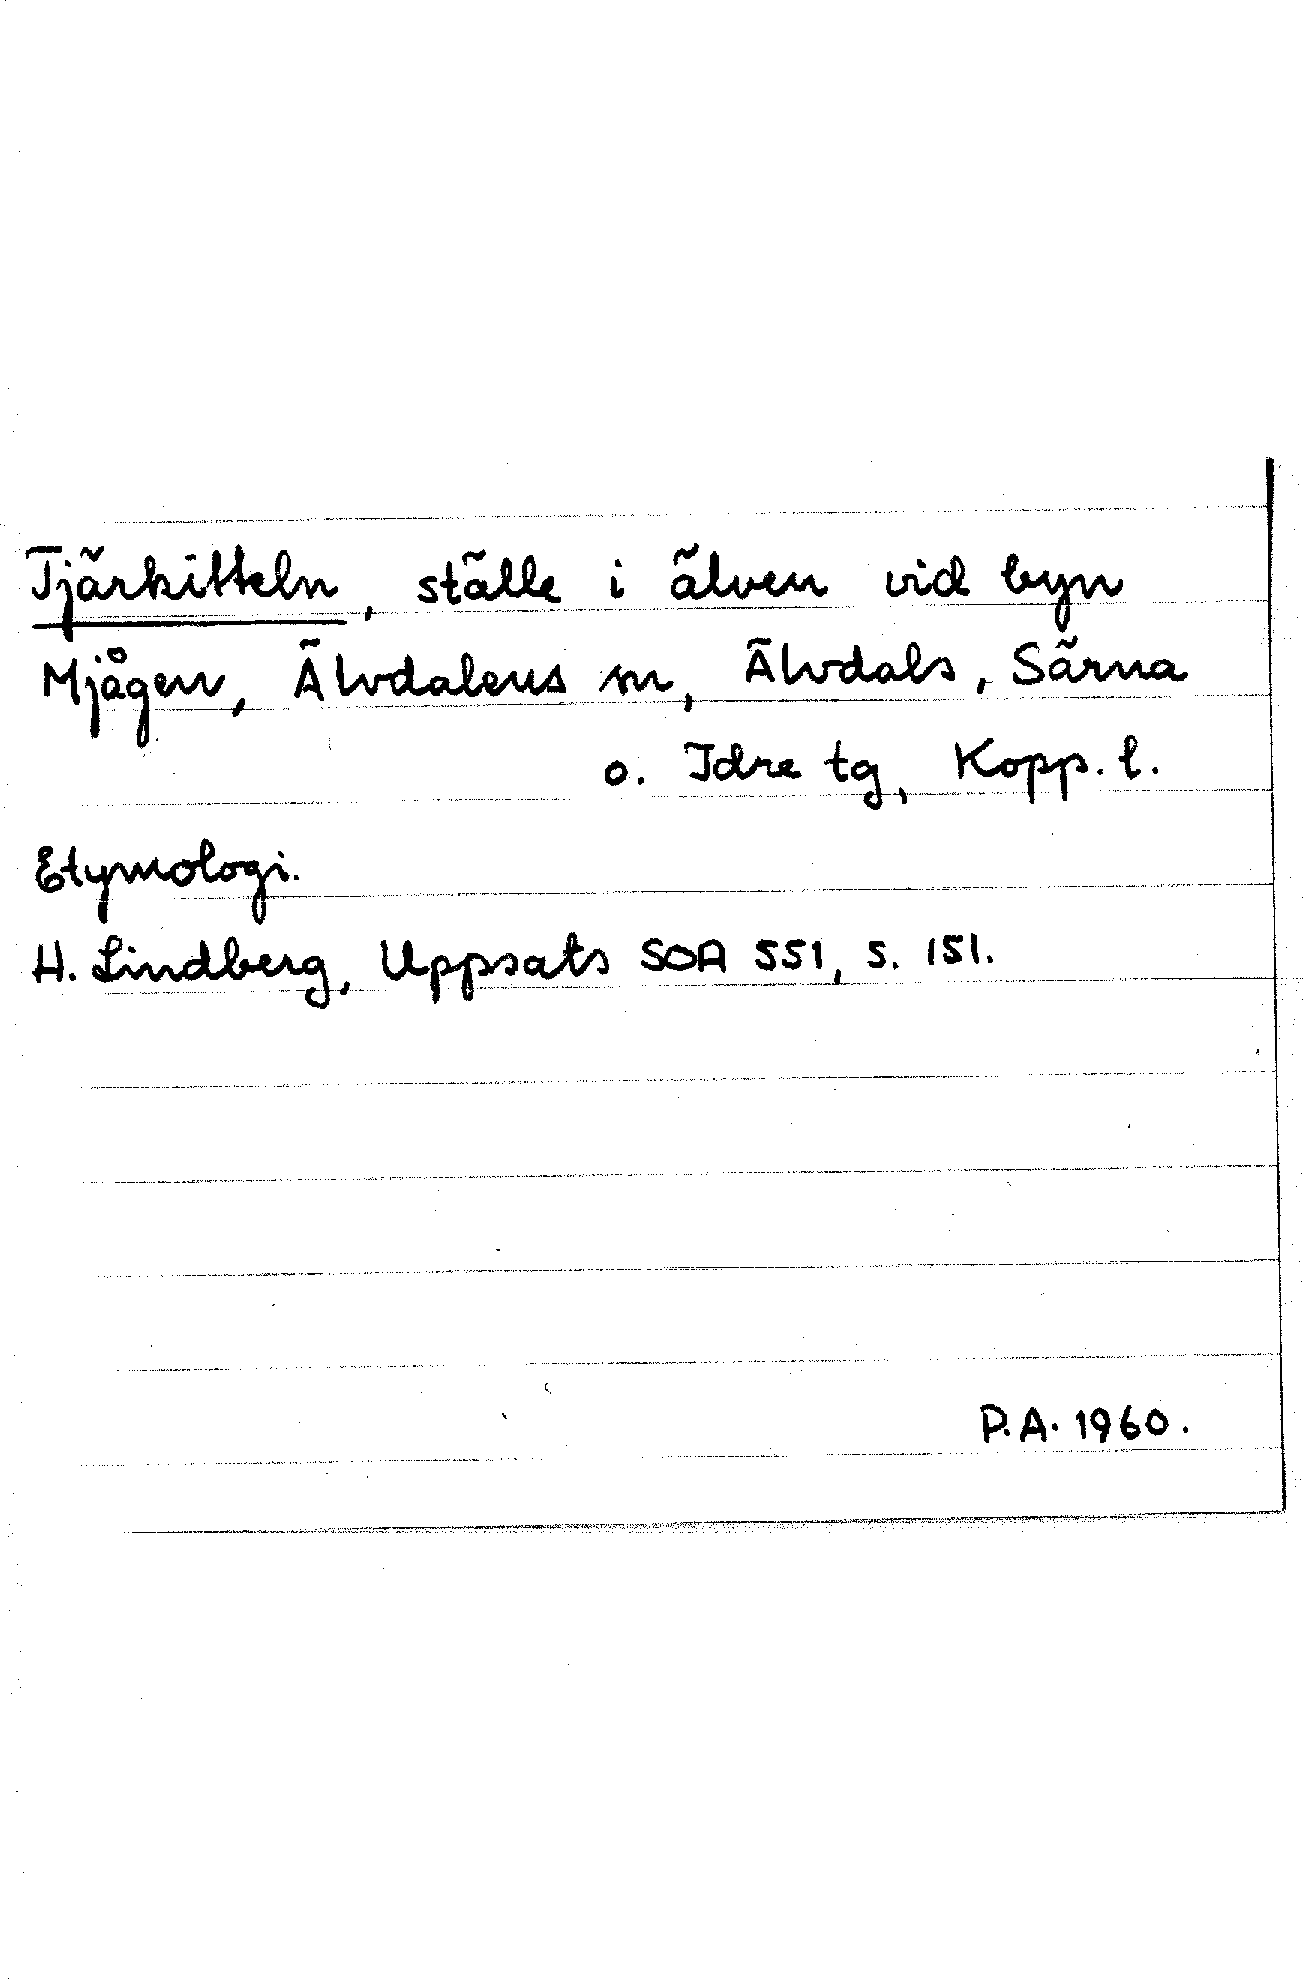 Tjärkitteln, ställe i älven vid byn
Mjågen, Älvdalens sn, Älvdals, Särna
o. Idre tg, Kopp. l.
Etymologi.
H. Lindberg, Uppsats SOA 551, s. 151.
P.A. 1960.